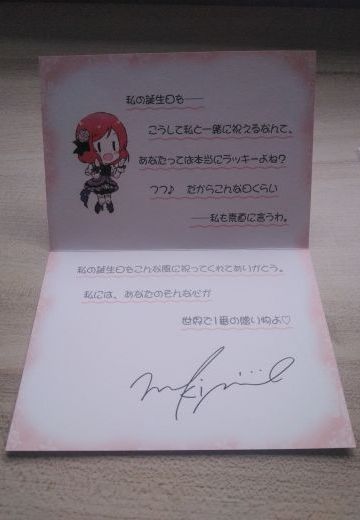 私の誕生日も――
こうして私と一緒に祝えるなんて、
あなたっては本当にラッキーよね?
つつ♪ だからこんな日くらい
――私も素直に言うわ。
私の誕生日をこんな風に祝ってくれてありがとう。
私には、あなたのそんな心が
世界で1番の贈り物よ♡
Maki